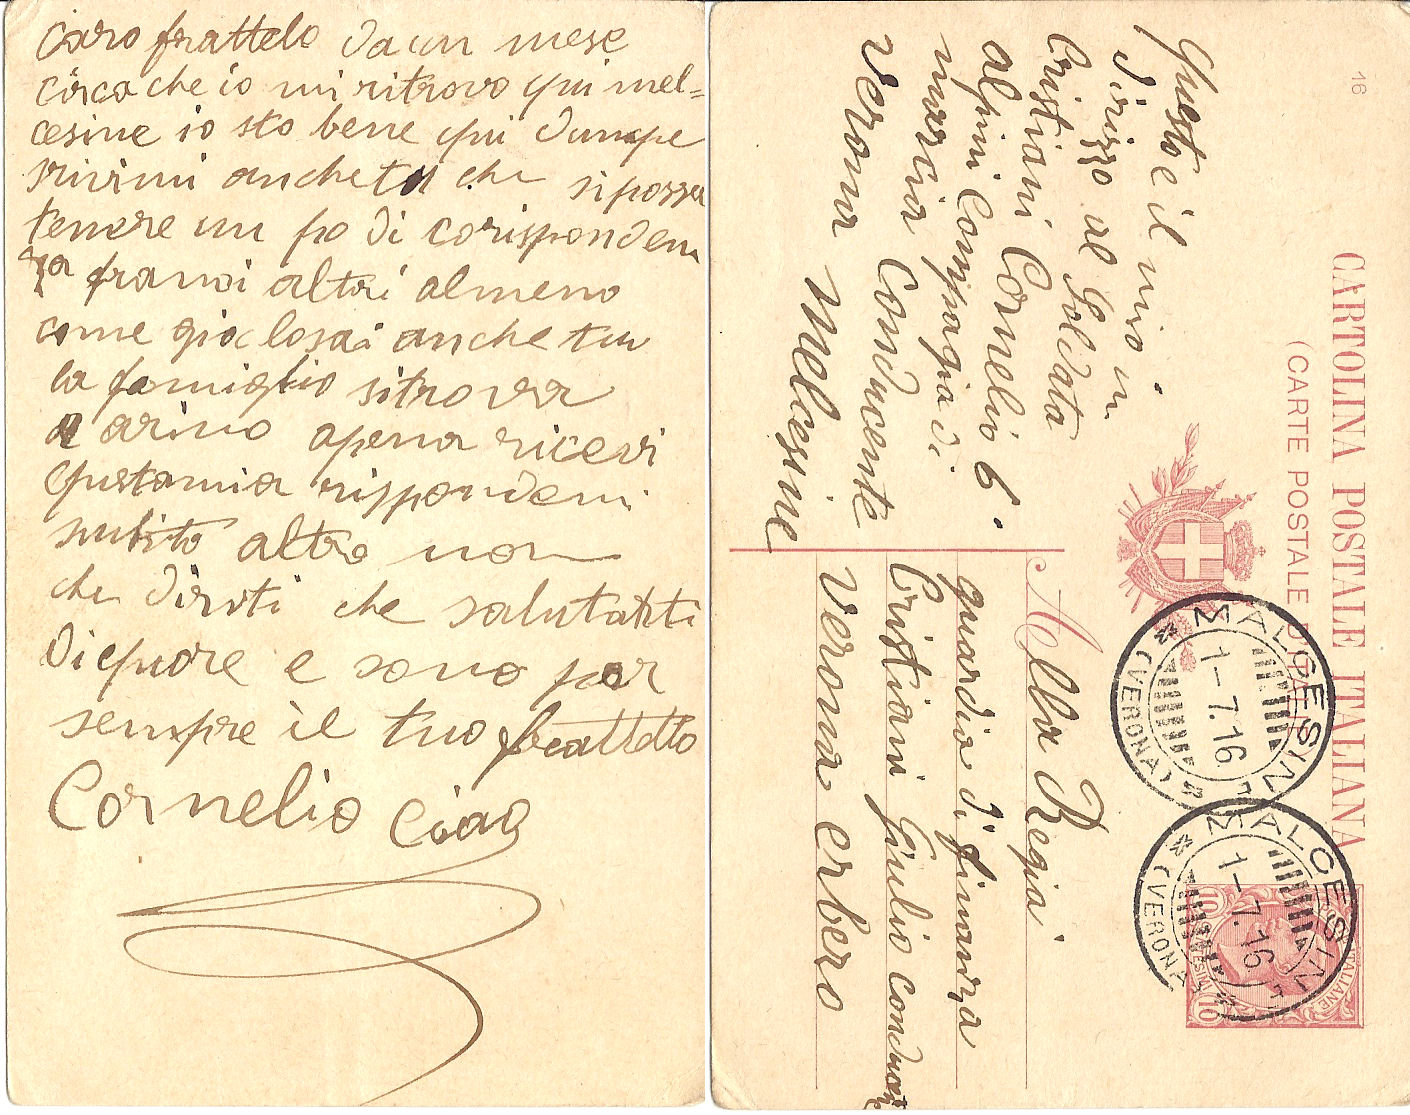 Caro frattelo da un mese
circa che io mi ritrovo qui mel=
cesine io sto bene qui dunqe
srivimi anche tu che si possa
tenere un po di corisponden
za franoi altri almeno
come gia losai anche tu
la famiglio sitrova
a arino apena ricevi
questamia rispondemi
subito altro non
che dirti che salutarti
di quore e sono per
sempre il tuo frattello
Cornelio Ciao
16
CARTOLINA POSTALE ITALIANA
(CARTE POSTALE D'ITALIE)
Questo e il mio in
dirizzo al Soldato
Cristiani Cornelio 6.
alpini Compagia di
marcia Conducente
verona Melcesine
Alla Regia
guardia di finanza
Cristiani Giulio
verona erbero
MALCESINE
1-7.16
(VERONA)
MALCESINE
1-7.16
(VERONA)
POSTE ITALIANE
10
10